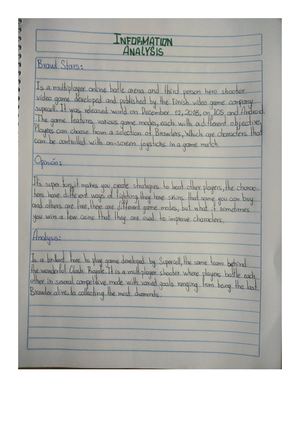 INFORMATION
ANALYSIS
Brawl Stars:
Is a multiplayer online battle arena and third person hero shooter
video game developed and published by the Finish video game company
supercell. It was released world on December, 12, 2018, on IOS and Android
The game features various game modes, each with a different objective,
Players can choose from a selection of Brawlers, which are characters that
can be controlled with on-screen joysticks in a game match.
Opinión:
Its super fun, it makes you create strategies to beat other players, the charac-
ters have different ways of fighting they have skins that some you can buy
and others are free, they are different game modes, but what is sometimes
you win a few coins that they are used to improve characters.
Analysis:
Is a free to play game developed by Supercell, the same team behind
the wonderful Clash Royale. It is a multiplayer shooter where players battle each
other in several competitive mode with varied goals ranging from being the last
Brawler alive to collecting the most diamonds.